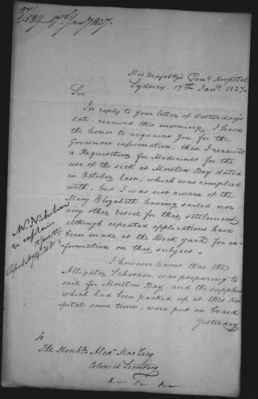 His Majesty's Genl Hospital
Sydney 19th Jany 1827.
Sir
In reply to your letter of Yesterday's
date, received this morning, I have
the honor to acquaint you for the
Governors information, that I received
a Requisition for Medicines for the
use of the sick at Moreton Bay dated
in October last, which was complied
with, but I was not aware of the
Mary Elizabeth having sailed nor
any other vessel for that settlement,
although repeated applications have
been made at the Dock yard for in-
formation on that subject.
I however learn that the
Alligator Schooner was preparing to
sail for Moreton Bay, and the supplies
which had been packed up at this Hos-
pital some time, were put on board
Yesterday
To
The Honble Alexr MacLeay
Colonial Secretary